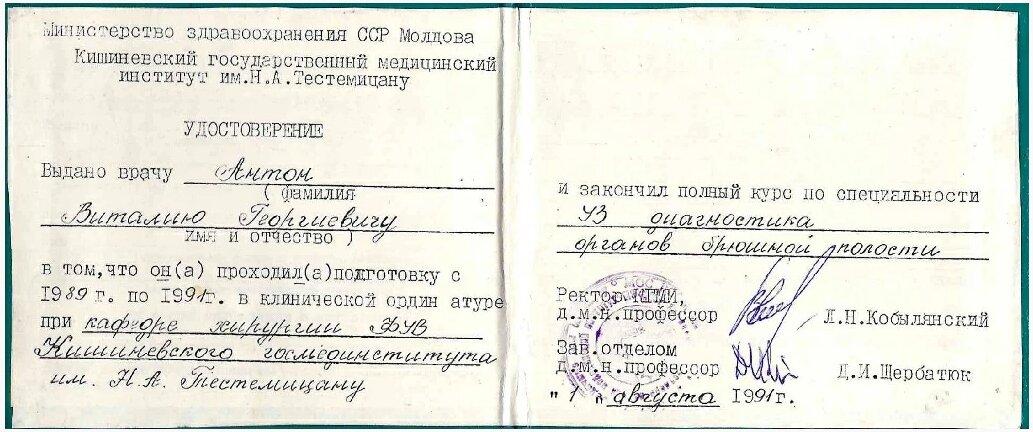 Министерство здравоохранения ССР Молдова
Кишиневский государственный медицинский
институт им.Н.А.Тестемицану
УДОСТОВЕРЕНИЕ
Выдано врачу Антон
( фамилия
Виталию Георгиевичу
имя и отчество )
в том,что он(а) проходил(а)подготовку с
1989 г. по 1991г. в клинической ордин атуре
при кафедре хирургии ФУВ
Кишиневского госмединститута
им. Н. А. Тестемицану
и закончил полный курс по специальности
УЗ диагностика
органов брюшной полости
Ректор КГМИ,
д.м.н.профессор Л.Н.Кобылянский
Зав.отделом
д.м.н.профессор Д.И.Щербатюк
"1" августа 1991г.